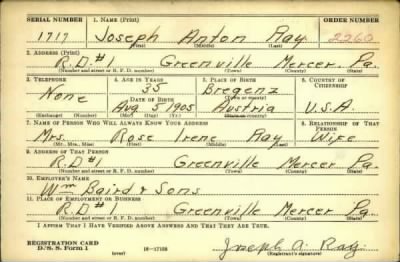 SERIAL NUMBER 1. NAME (Print) ORDER NUMBER
1717 Joseph Anton Ray 2260
(First) (Middle) (Last)
2. ADDRESS (Print)
R.D.#1 Greenville Mercer Pa.
(Number and street or R. F. D. number) (Town) (County) (State)
3. TELEPHONE 4. AGE IN YEARS 5. PLACE OF BIRTH 6. COUNTRY OF CITIZENSHIP
None 35 Bregenz
(Town or county)
DATE OF BIRTH
Aug 5 1905 Austria U.S.A.
(Exchange) (Number) (Mo.) (Day) (Yr.) (State or country)
7. NAME OF PERSON WHO WILL ALWAYS KNOW YOUR ADDRESS 8. RELATIONSHIP OF THAT PERSON
Mrs. Rose Irene Ray Wife
(Mr., Mrs., Miss) (First) (Middle) (Last)
9. ADDRESS OF THAT PERSON
R.D.#1 Greenville Mercer Pa.
(Number and street or R. F. D. number) (Town) (County) (State)
10. EMPLOYER'S NAME
Wm Baird & Sons
11. PLACE OF EMPLOYMENT OR BUSINESS
R.D.#1 Greenville Mercer Pa.
(Number and street or R. F. D. number) (Town) (County) (State)
I AFFIRM THAT I HAVE VERIFIED ABOVE ANSWERS AND THAT THEY ARE TRUE.
REGISTRATION CARD
D.S.S. Form 1 (over) 16-17105 Joseph A. Ray
(Registrant's signature)